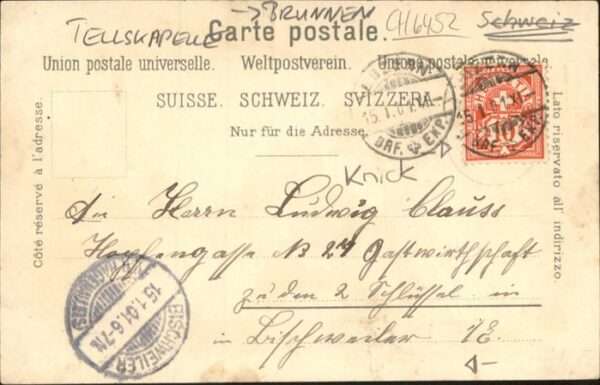 → BRUNNEN CH/6452 Schweiz
TELLSKAPELLE
Carte postale.
Union postale universelle. Weltpostverein. Unione postale universale.
SUISSE. SCHWEIZ. SVIZZERA.
Nur für die Adresse.
Côté réservé à l'adresse.
Lato riservato all' indirizzo
BRF. EXP.
BRF. EXP.
10
Knick
An Herrn Ludwig Clauss
Hopfengasse N 27 Gastwirthschaft
zu den 2 Schlüssel in
in Bischweiler i/E.
BISCHWEILER
15.1.01.6-7N.